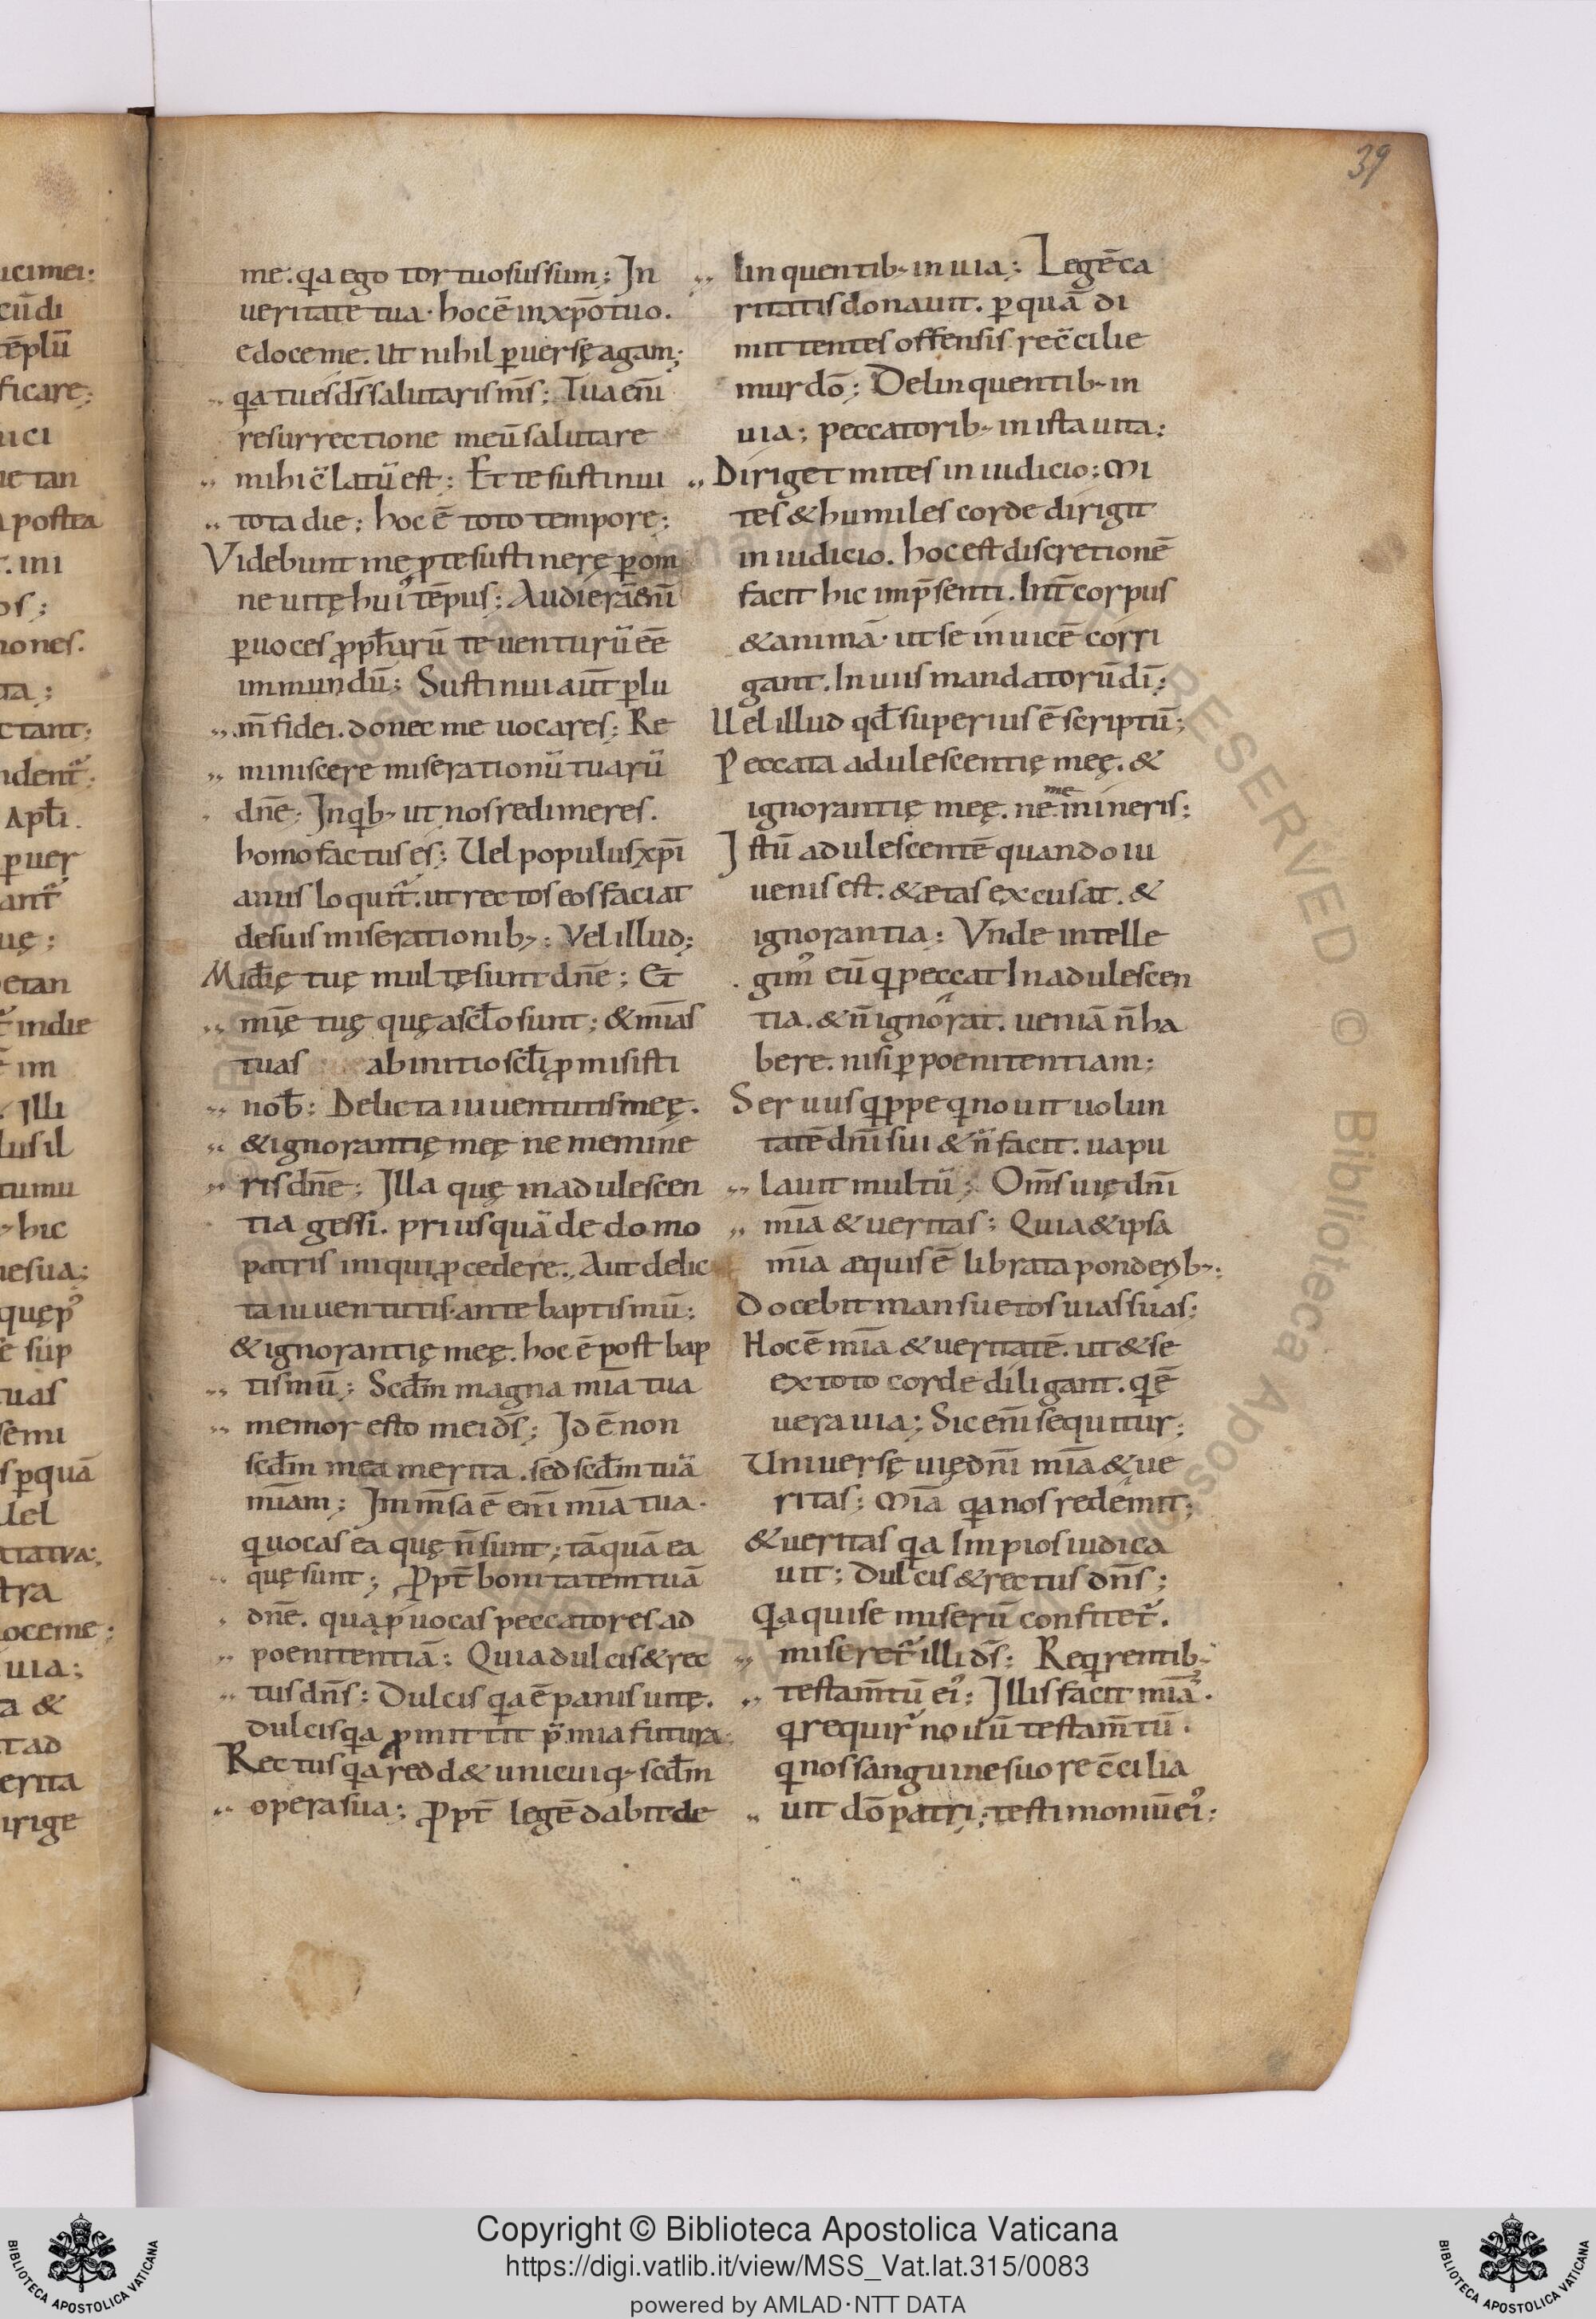 39
me. q̇a ego tortuosus sum; In
ueritate tua. hoc ē in xp̄o tuo.
edoce me. ut nihil ꝑuersę agam;
q̇a tu es ds̄ salutaris ms̄; Tua em̄
resurrectione meū salutare
mihi c̄latū est; Et te sustinui
tota die; hoc ē toto tempore;
Videbunt me ꝓ te sustinere ꝑ om
ne uitę hui᾿ tēpus; Audierā em̄
ꝑ uoces ꝓph̄arū te uenturū eē
in mundū; Sustinui aut̄ ꝑ lu
m̄ fidei. donec me uocares; Re
miniscere miserationū tuarū
dn̄e; In qb; ut nos redimeres.
homo factus es; Uel populus xp̄i
anus loquit̄. ut rectos eos faciat
de suis miserationib;; Vel illud;
Mīdię tuę multę sunt dn̄e; Et
mīę tuę quę a scl̄o sunt; & mīas
tuas ab initio scl̄i ꝓmisisti
nob̄; Delicta iuuentutis meę.
& ignorantię meę ne memine
ris dn̄e; Illa quę in adulescen
tia gessi. priusquā de domo
patris iniqui ꝓcedere. Aut delic
ta iuuentutis. ante baptismū;
& ignorantię meę. hoc ē post bap
tismū; Scdm̄ magna mīa tua
memor esto mei ds̄; Id ē non
scdm̄ mea merita. sed scdm̄ tuā
mīam; Immsa ē em̄ mīa tua.
q uocas ea quę n̄ sunt; tāquā ea
quę sunt; Ꝓpt̄ bonitatem tuā
dn̄e. qua ꝓuocas peccatores ad
poenitentiā; Quia dulcis & rec
tus dn̄s; Dulcis q̇a ē panis uitę.
dulcis q̇a ꝓmittit p̄mia futura.
Rectus q̇a redd& unicuiq; scdm̄
opera sua; Ꝓpt̄ legē dabit de
linquentib; in uia; Legē ca
ritatis donauit. ꝑ quā di
mittentes offensis. rec̄cilie
mur dō; Delinquentib; in
uia; peccatorib; in ista uita;
Diriget mites in iudicio; Mi
tes & humiles corde dirigit
in iudicio. hoc est discretionē
facit hic in p̄senti. Int̄ corpus
& animā. ut se inuicē corri
gant. In uiis mandatorū dī;
Uel illud qd̄ superius ē scriptū;
Peccata adulescentię meę. &
ignorantię meę. ne memineris;
Istū adulescentē quando iu
uenis est. & ætas excusat. &
ignorantia; Vnde intelle
gim᾿ eū q peccat In adulescen
tia. & n̄ ignorat. ueniā n̄ ha
bere. nisi ꝑ poenitentiam;
Seruus qppe q nouit uolun
tatē dn̄i sui & n̄ facit. uapu
lauit multū; Om̄s uię dn̄i
mīa & ueritas; Quia & ipsa
mīa æquis ē librata ponderib;;
Docebit mansuetos uias suas;
Hoc ē mīa & ueritatē. ut & se
ex toto corde diligant. q ē
uera uia; Sic em̄ sequitur;
Uniuersę uię dn̄i mīa & ue
ritas; Mīa q̇a nos redemit;
& ueritas q̇a Impios iudica
uit; Dulcis & rectus dn̄s;
Q̇a qui se miserū confitet̄.
miseret̄ illi ds̄; Reqrentib;
testam̄tū ei᾿; Illis facit mīā.
q requir̄ nouū testam̄tū.
q nos sanguine suo rec̄cilia
uit dō patri; testimoniū ei᾿;
icimei:
cūdi
tēplū
ficare;
tan
postea
. ini
os;
nones.
ctant;
Apl̄i.
ꝑuer
ant̄
etan
indie
im
Illi
lusil
tumu
hic
esua;
sup
tuas
semi
ꝑquā
Uel
stra
oceme;
uia;
a &
tad
erita
irige
Copyright © Biblioteca Apostolica Vaticana
https://digi.vatlib.it/view/MSS_Vat.lat.315/0083
powered by AMLAD·NTT DATA
BIBLIOTECA APOSTOLICA VATICANA
BIBLIOTECA APOSTOLICA VATICANA